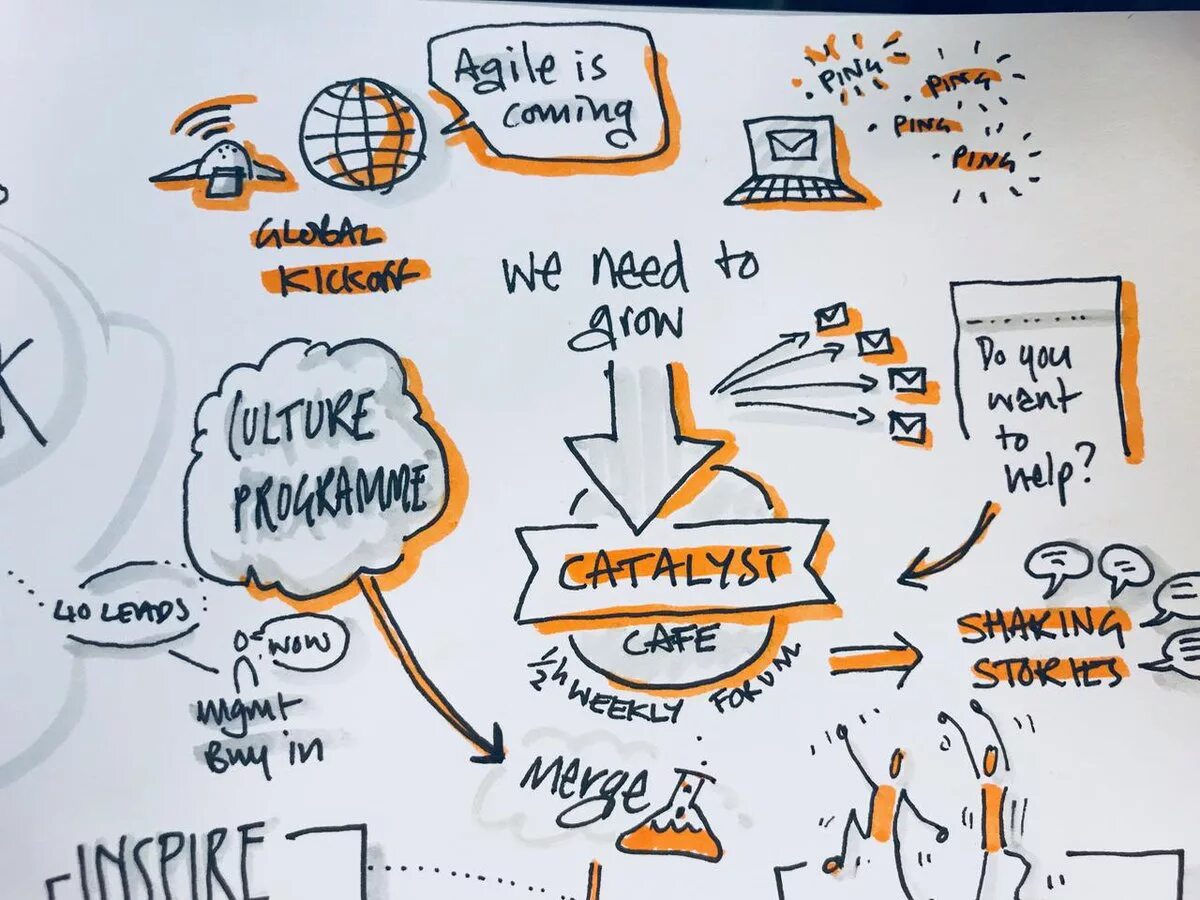 Agile is
coming
PING
PING
PING
PING
GLOBAL
KICKOFF
We need to
grow
Do you
want
to
help?
CULTURE
PROGRAMME
CATALYST
CAFE
1/2h WEEKLY FORUM
SHARING
STORIES
40 LEADS
WOW
Mgmt
Buy in
Merge
INSPIRE
K